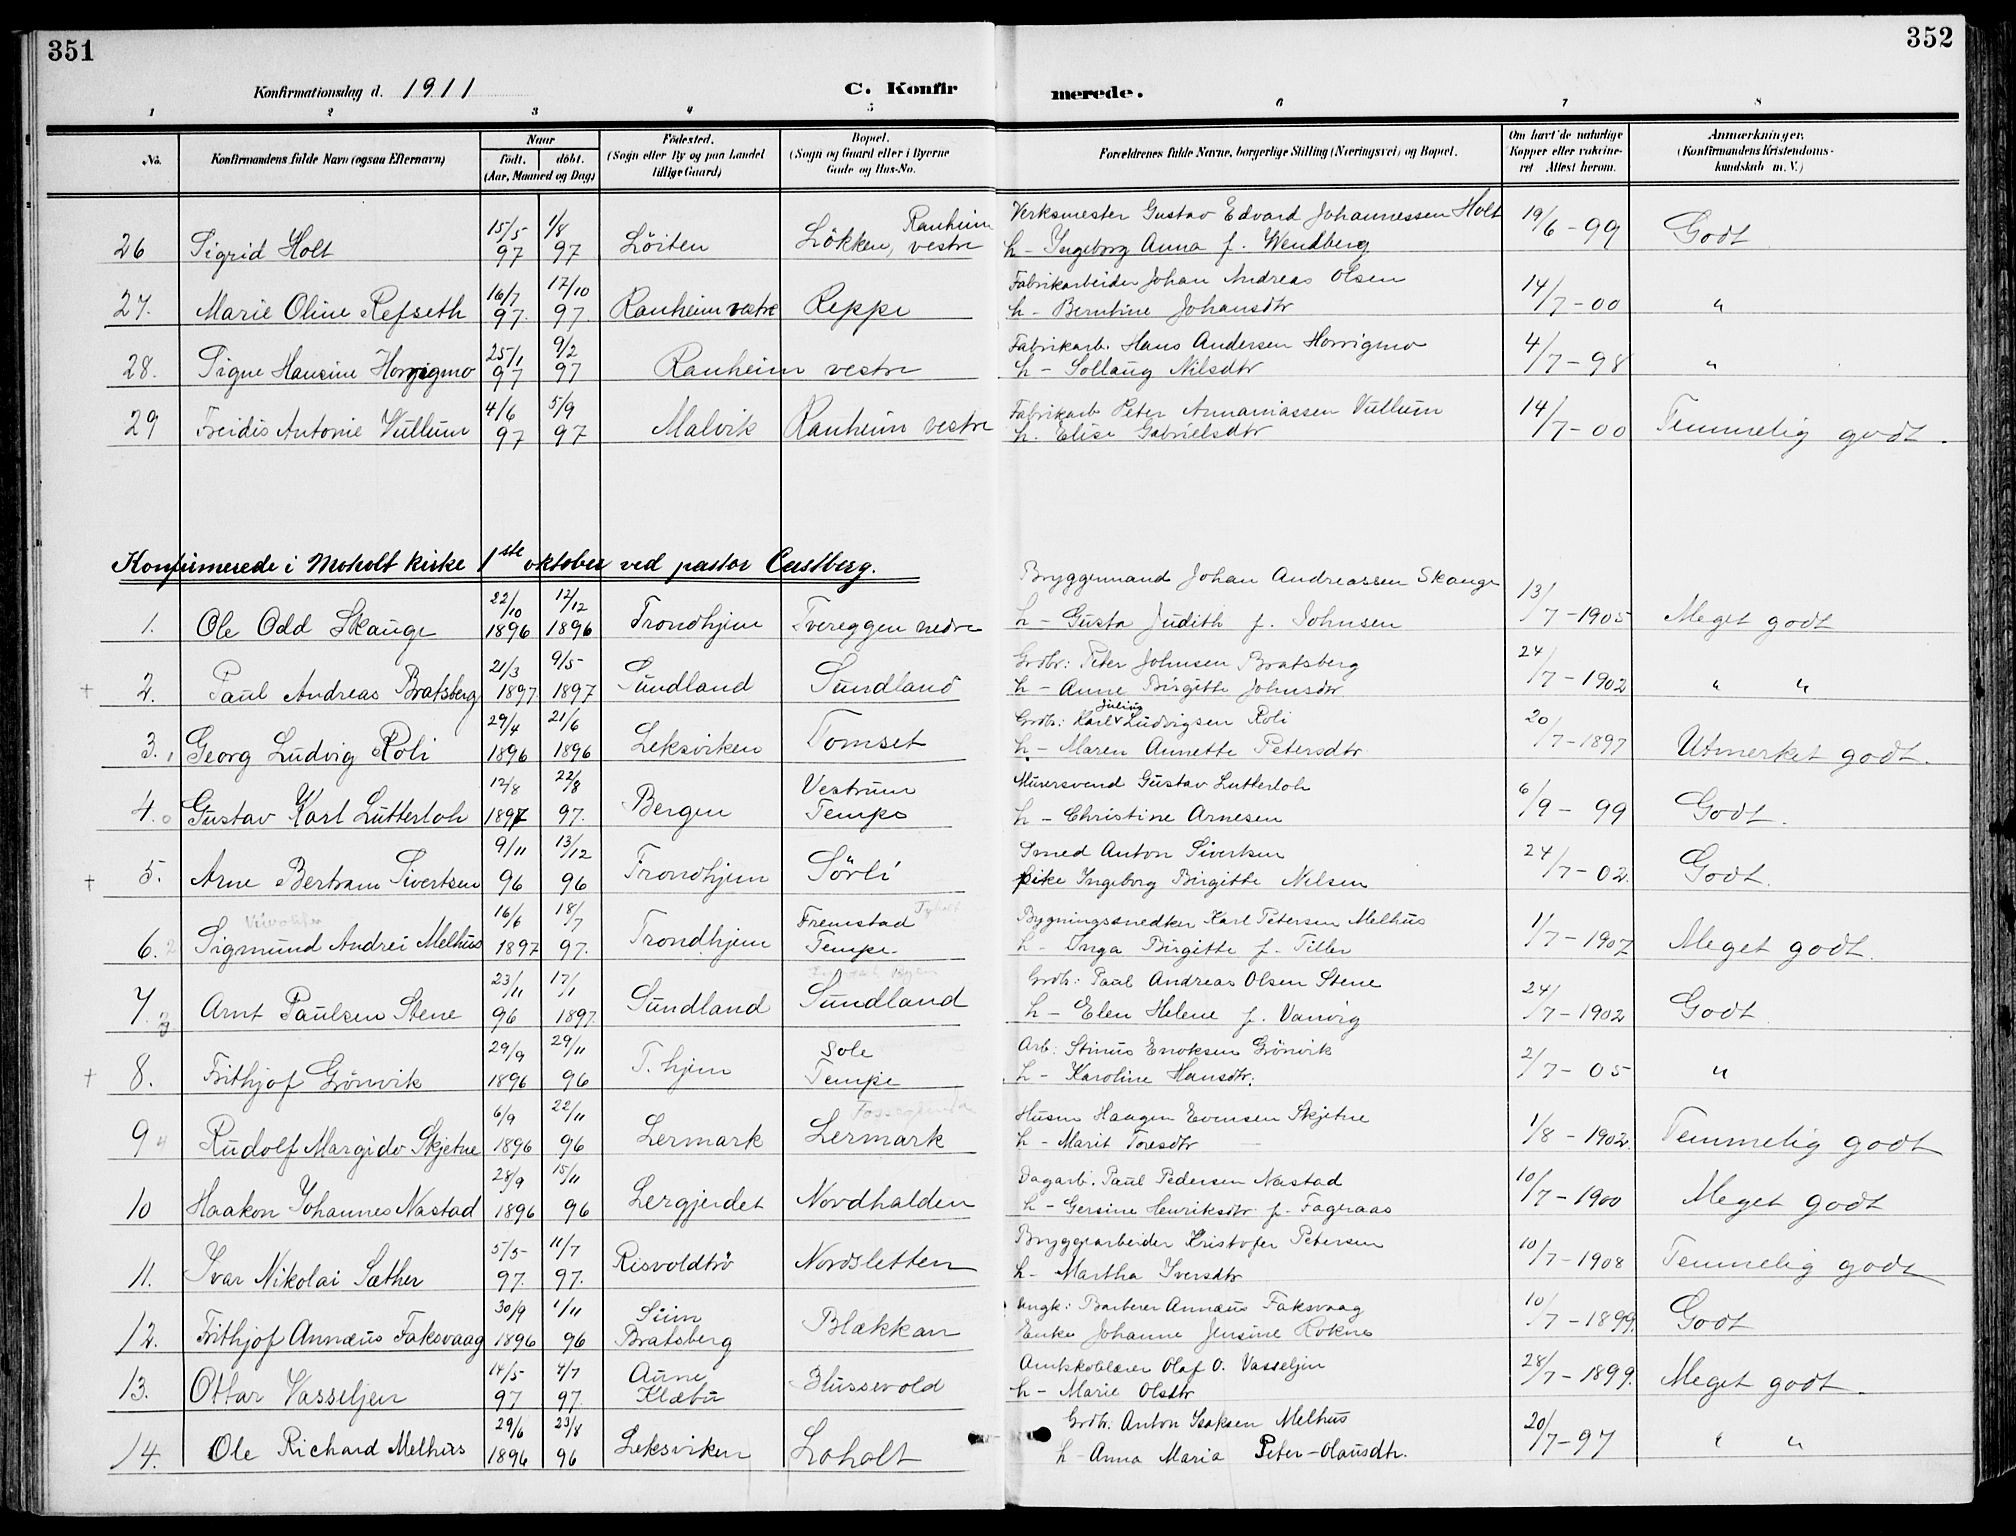 351
352
Konfirmationsdag d. 1911
C. Konfirmerede.
1 2 3 4 5 6 7 8
No.
Konfirmandens fulde Navn (ogsaa Efternavn)
Naar
født. døbt.
(Aar, Maaned og Dag)
Fødested.
(Sogn eller By og paa Landet tillige Gaard)
Bopæl.
(Sogn og Gaard eller i Byerne Gade og Hus-No.
Forældrenes fulde Navne, borgerlige Stilling (Næringsvei) og Bopæl.
Om havt de naturlige Kopper eller vakcineret Attest herom.
Anmærkninger.
(Konfirmandens Kristendomskundskab m. V.)
26 Sigrid Holt 15/5 97 1/8 97 Löiten Lökken, Ranheim vestre Verksmester Gustav Edvard Johannessen Holt 19/6 - 99 Godt
h - Ingeborg Anna f. Wendberg
27. Marie Oline Refseth 16/7 97. 17/10 97. Ranheim vestre Reppe Fabrikarbeider Johan Andreas Olsen 14/7 - 00 "
h - Berntine Johansdtr
28. Signe Hansine Horrigmo 25/1 97 9/2 97 Ranheim vestre Fabrikarb. Hans Andersen Horrigmo 4/7 - 98 "
h - Sollaug Nilsdtr
29 Freidis Antonie Vullum 4/6 97 5/9 97 Malvik Ranheim vestre Fabrikarb Peter Annaniassen Vullum 14/7 - 00 Temmelig godt.
h. Elise Gabrielsdtr
Konfirmerede i Moholt kirke 1ste oktober ved pastor Castberg.
1. Ole Odd Skauge 22/10 1896 12/12 1896 Trondhjem Tvereggen nedre Bryggemand Johan Andreassen Skauge 13/7 - 1905 Meget godt
h - Gusta Judith f. Johnsen
+ 2. Paul Andreas Bratsberg 21/3 1897. 9/5 1897 Sundland Sundland Grdbr: Peter Johnsen Bratsberg 24/7 - 1902 " "
h - Anne Birgitte Johnsdtr
3. Georg Ludvig Roli 29/4 1896 21/6 1896 Leksviken Tomset Grdbr: Karl Julius Ludvigsen Roli 20/7 - 1897 Utmerket godt.
h - Maren Annette Petersdtr
4. Gustav Karl Lutterloh 12/8 1897 22/8 97. Bergen Vestrum Tempe Murersvend Gustav Lutterloh 6/9 - 99 Godt.
h - Christine Arnesen
+ 5. Arne Bertram Sivertsen 9/11 96 13/12 96 Trondhjem Sörli Smed Anton Sivertsen 24/7 - 02. Godt.
pike Ingeborg Birgitte Nilsen
6. Sigmund Andrei Melhus 16/6 1897 18/7 97. Trondhjem Fremstad Tempe Bygningssnedker Karl Petersen Melhus 1/7 - 1907 Meget godt.
h - Inga Birgitte f. Tiller
7. Arnt Paulsen Stene 23/11 96 17/1 1897. Sundland Sundland Grdb: Paul Andreas Olsen Stene 24/7 - 1902 Godt
h - Elen Helene f. Vanvig
+ 8. Frithjof Grönvik 29/9 1896 29/11 96 T. hjem Sole Tempe Arb: Stinus Enoksen Grönvik 2/7 - 05 "
h - Karoline Hansdtr.
9 Rudolf Margido Skjetne 6/9 1896 22/11 96 Lermark Lermark Husm Haagen Evensen Skjetne 1/8 - 1902. Temmelig godt
h - Marit Toresdtr
10 Haakon Johannes Nastad 28/9 1896 15/11 96 Lergjerdet Nordhalden Dagarb. Paul Pedersen Nastad 10/7 - 1900 Meget godt
h - Gersine Henriksdtr f. Fageraas
11. Ivar Nikolai Sæther 5/5 97. 11/7 97. Risvoldtrö Nordsletten Bryggearbeider Kristofer Petersen 10/7 - 1908 Temmelig godt
h - Martha Iversdtr
12. Frithjof Annæus Faksvaag 30/9 1896 1/11 96 Siim Bratsberg Blækkan Ungk: Barberer Annæus Faksvaag 10/7 - 1899. Godt
Enke Johanne Jensine Rokne
13. Ottar Vasseljen 14/5 97 4/7 97. Aune Klæbu Blussevold Amtskolelærer Olaf O. Vasseljen 28/7 - 1899. Meget godt.
h - Marie Olsdtr
14. Ole Richard Melhus 29/6 1896 23/8 96 Leksviken Loholt Grdb: Anton Isaksen Melhus 20/7 - 97 " "
h - Anna Maria Peter-Olausdtr.